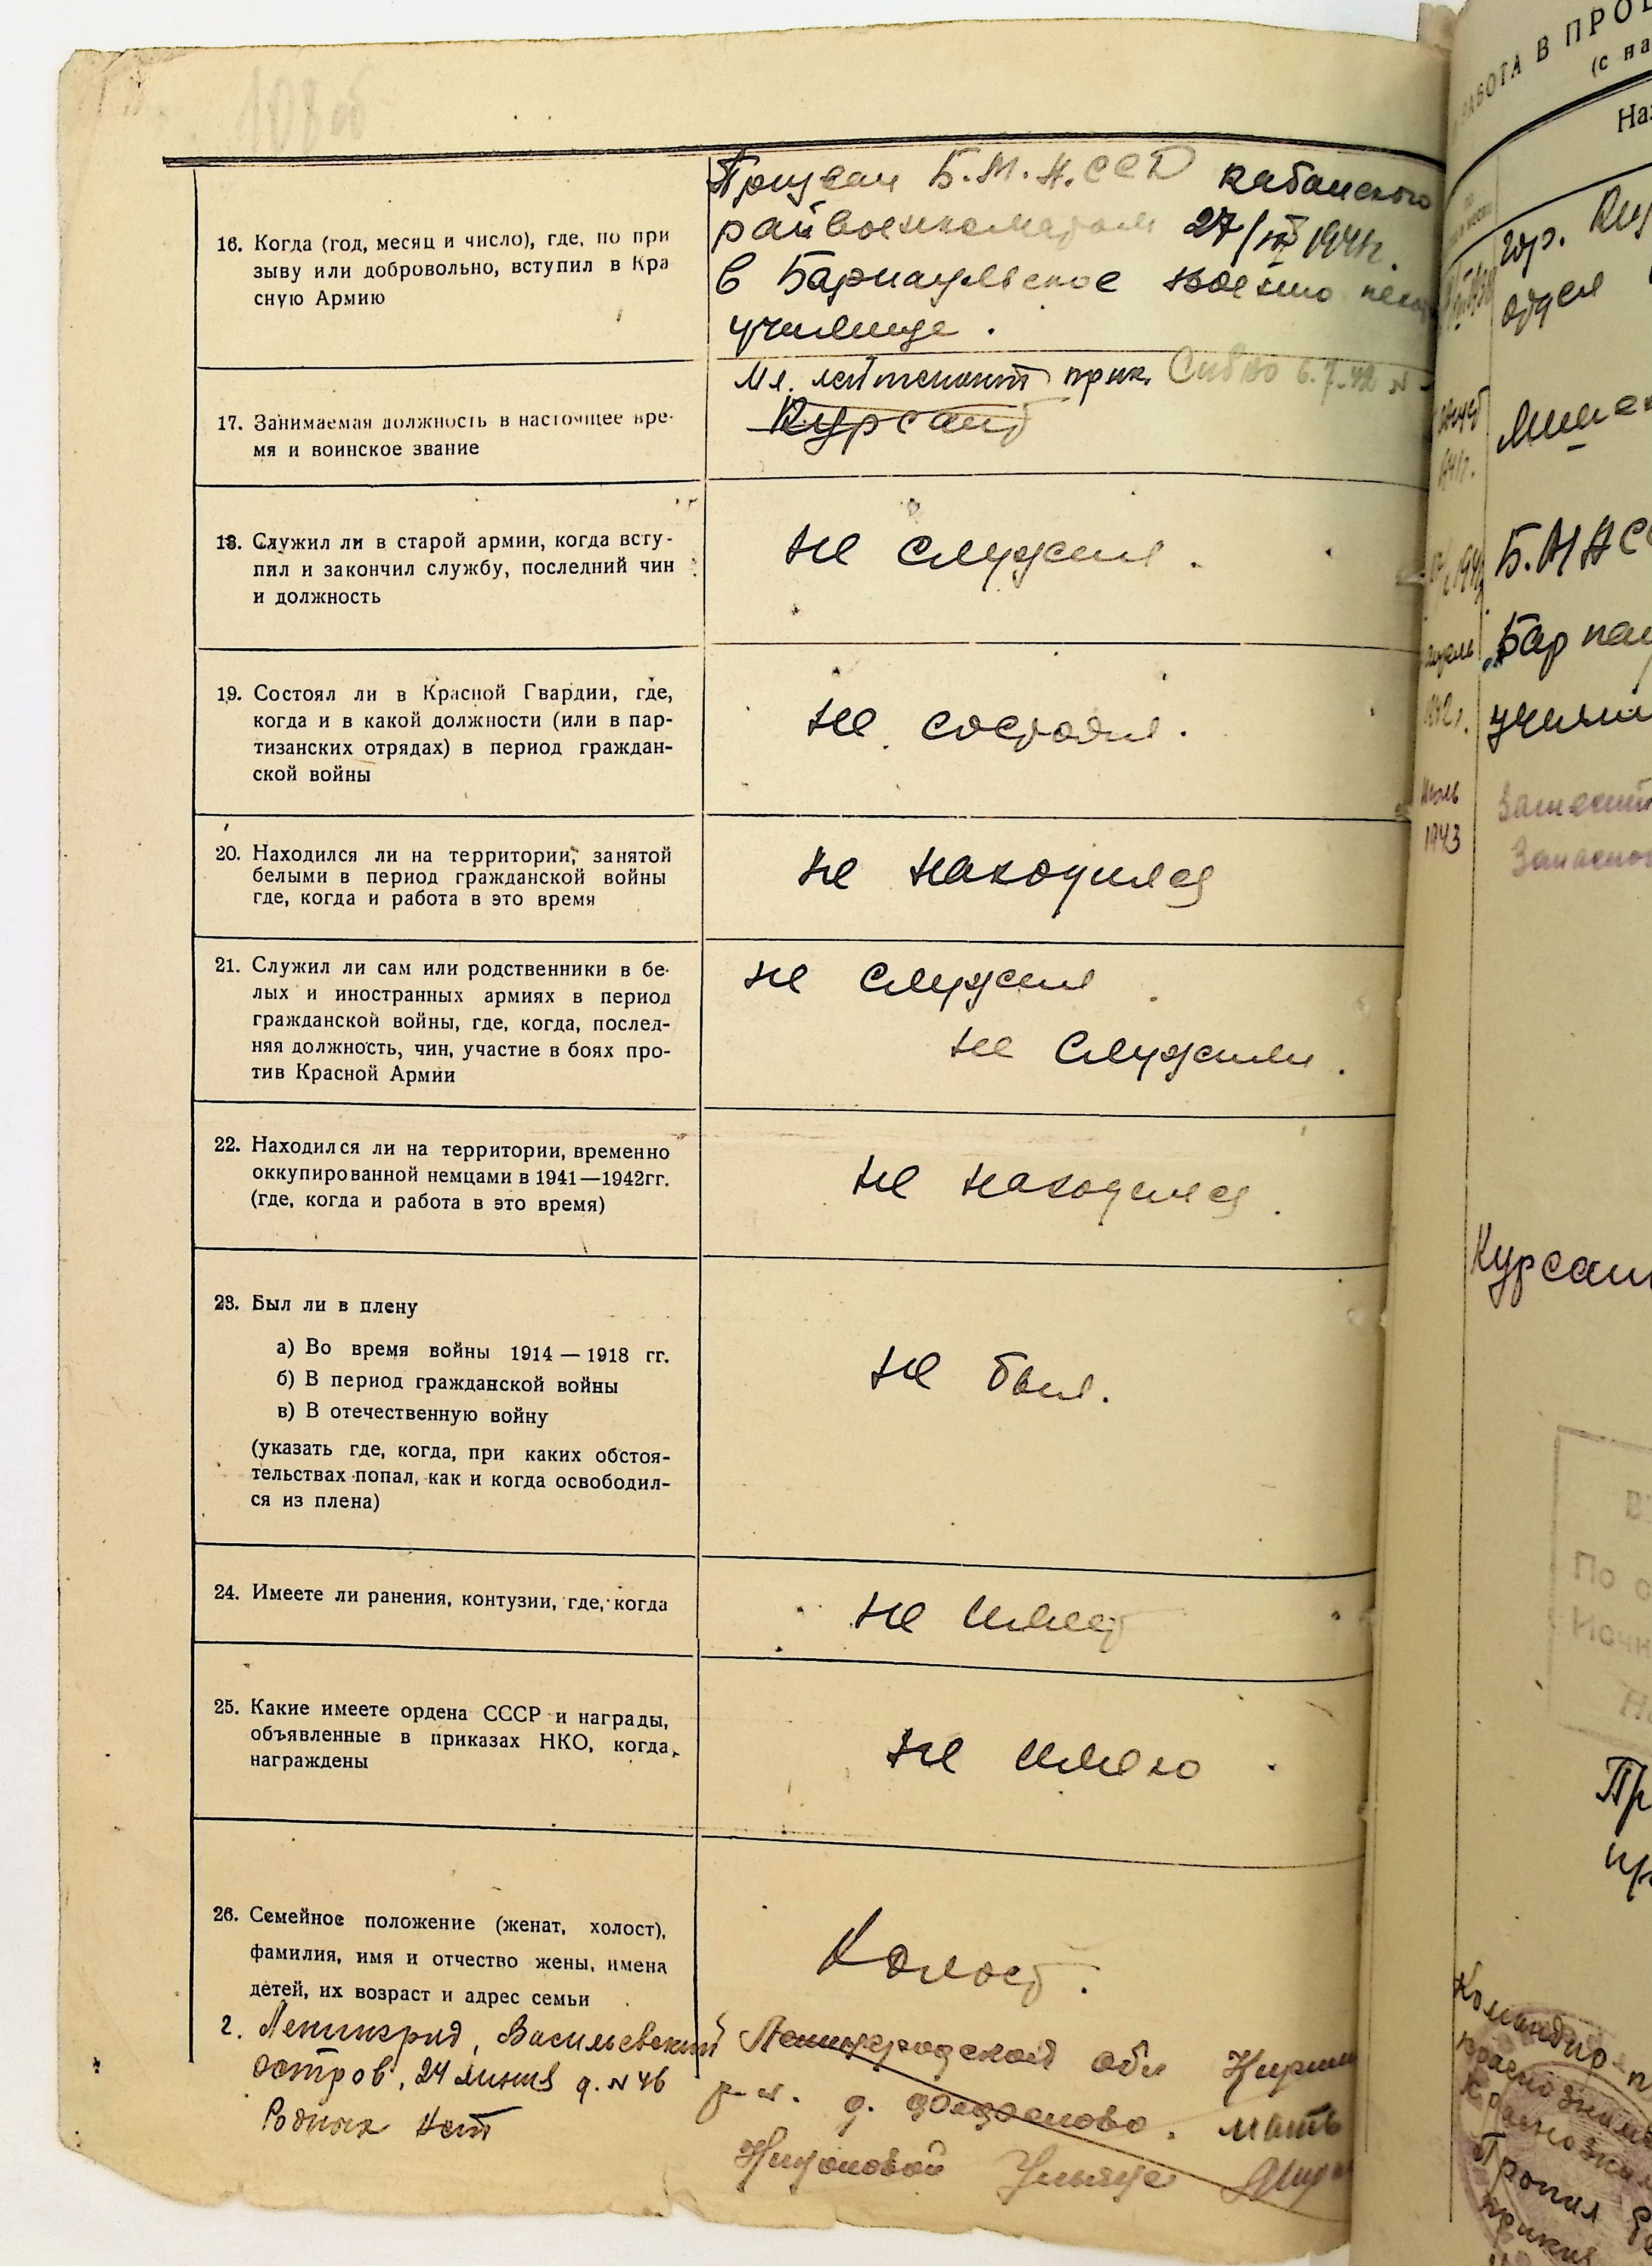 108 об
16. Когда (год, месяц и число), где, по при
зыву или добровольно, вступил в Кра
сную Армию
Призван Б.М.А.ССР Кабанского
райвоенкоматом 27/ 1941г.
в Барнаульское военно
училище.
17. Занимаемая должность в настоящее вре-
мя и воинское звание
Мл. лейтенант прик. СибВО 6.7.42 №
Курсант
18. Служил ли в старой армии, когда всту-
пил и закончил службу, последний чин
и должность
не служил.
19. Состоял ли в Красной Гвардии, где,
когда и в какой должности (или в пар-
тизанских отрядах) в период граждан-
ской войны
не состоял.
20. Находился ли на территории, занятой
белыми в период гражданской войны
где, когда и работа в это время
не находился
21. Служил ли сам или родственники в бе-
лых и иностранных армиях в период
гражданской войны, где, когда, послед-
няя должность, чин, участие в боях про-
тив Красной Армии
не служил
не служили.
22. Находился ли на территории, временно
оккупированной немцами в 1941—1942гг.
(где, когда и работа в это время)
не находился.
23. Был ли в плену
а) Во время войны 1914—1918 гг.
б) В период гражданской войны
в) В отечественную войну
(указать где, когда, при каких обстоя-
тельствах попал, как и когда освободил-
ся из плена)
не был.
24. Имеете ли ранения, контузии, где, когда
не имеет
25. Какие имеете ордена СССР и награды,
объявленные в приказах НКО, когда
награждены
не имею.
26. Семейное положение (женат, холост),
фамилия, имя и отчество жены, имена
детей, их возраст и адрес семьи
Холост.
г. Ленинград, Васильевский
остров, 24 линия д. № 46
Родных нет
Ленинградской обл
р-н. д. мать
Ульяне
РАБОТА В
(с на
гор.
отдел
Б.МАСС
Барнау
училищ
апрель
1942г.
Июль
1943
Заместит
Запасног
Курсант
По о
Командир
Краснознам